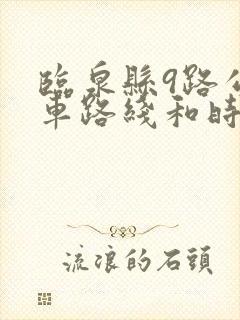 臨泉縣9路公
車路綫和時
流浪的石頭